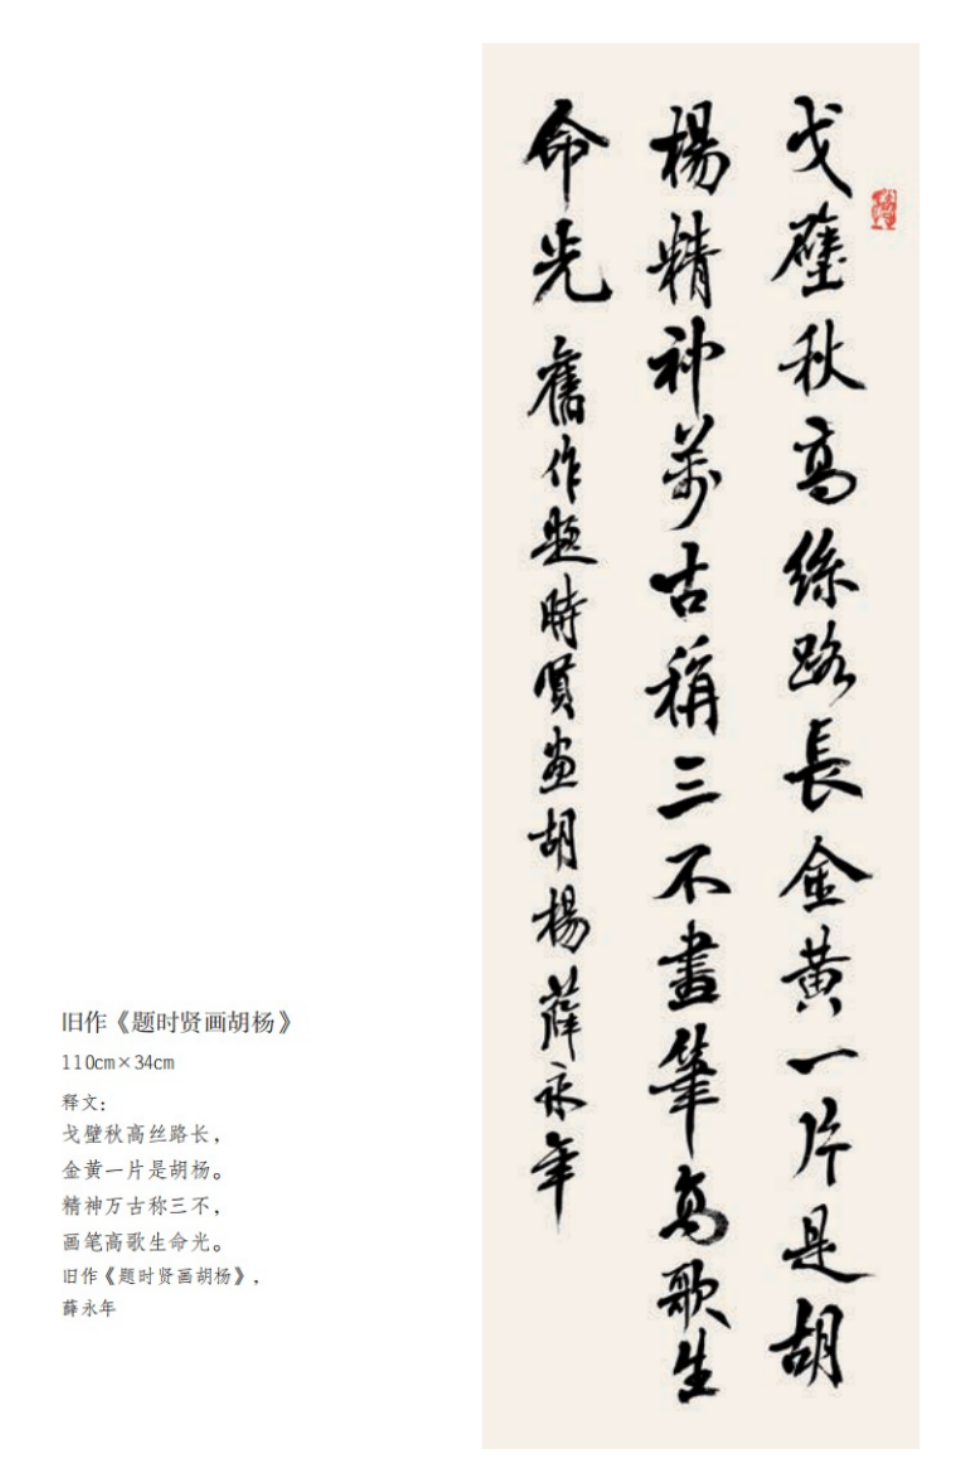 戈壁秋高絲路長金黄一片是胡
楊精神萬古稱三不畫筆高歌生
命光 舊作題時賢画胡楊薛永年
旧作《题时贤画胡杨》
110cm×34cm
释文：
戈壁秋高丝路长，
金黄一片是胡杨。
精神万古称三不，
画笔高歌生命光。
旧作《题时贤画胡杨》，
薛永年